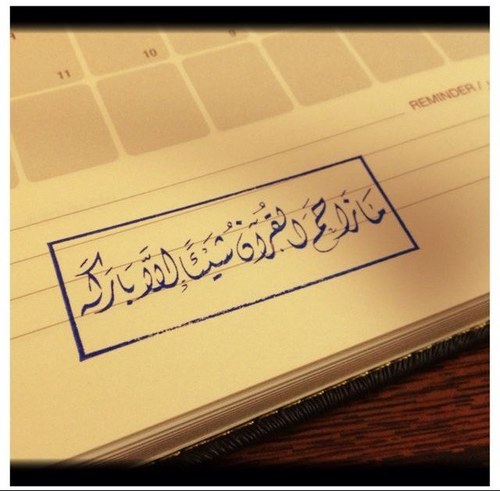 9
10
11
REMINDER /
مَا زَاحَمَ الْقُرْآنُ شَيْئًا إِلَّا بَارَكَهُ